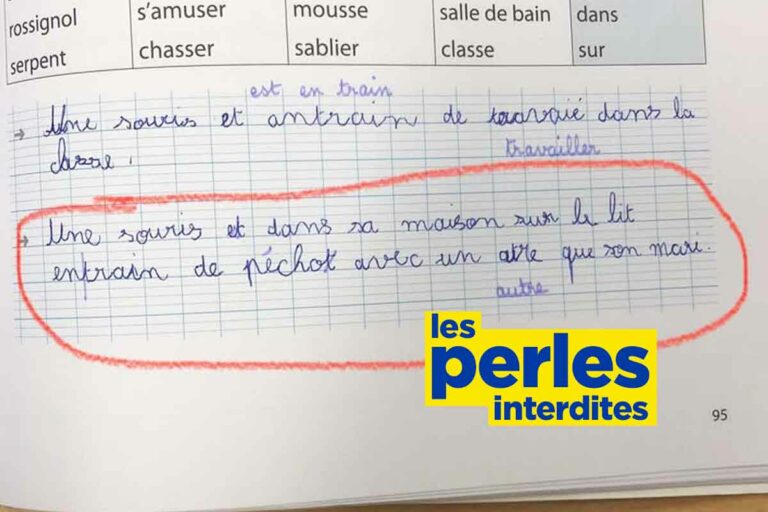 rossignol s'amuser mousse salle de bain dans
serpent chasser sablier classe sur
est en train
→ Une souris et antrain de travaié dans la
classe.
travailler
→ Une souris et dans sa maison sur le lit
entrain de péchot avec un atre que son mari.
autre
les
perles
interdites
95